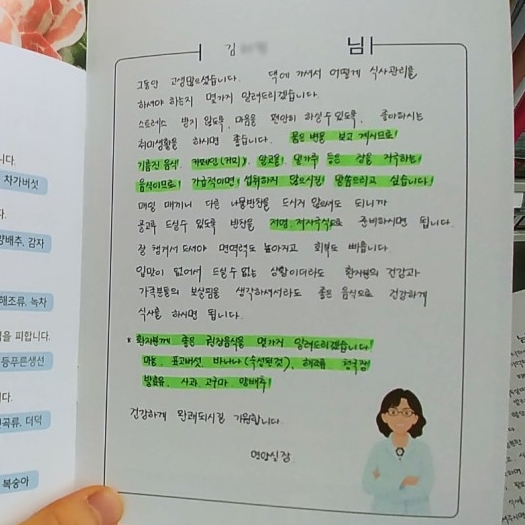 김 님
그동안 고생많으셨습니다. 댁에 가셔서 어떻게 식사관리를
하셔야 하는지 몇가지 알려드리겠습니다.
스트레스 받지 않도록, 마음을 편안히 하실수 있도록, 좋아하시는
취미생활을 하시면 좋습니다. 묽은 변을 보고 계시므로!
기름진 음식, 카페인(커피), 알코올, 밀가루 등은 장을 자극하는
음식이므로! 가급적이면! 섭취하지 않으시길! 말씀드리고 싶습니다!
매일 매끼니 다른 나물반찬을 드시지 않으셔도 되니까
골고루 드실수 있도록 반찬을 저염, 저자극식으로 준비하시면 됩니다.
잘 챙겨서 드셔야 면역력도 높아지고 회복도 빠릅니다.
입맛이 없어서 드실수 없는 상황이더라도 환자분의 건강과
가족분들의 보살핌을 생각하셔서라도 좋은 음식으로 건강하게
식사를 하시면 됩니다.
* 환자분께 좋은 권장음식을 몇가지 알려드리겠습니다!
마늘, 표고버섯, 바나나(숙성된것), 해조류, 청국장
발효유, 사과, 고구마, 양배추!
건강하게 완쾌되시길 기원합니다.
영양실장
니다.
차가버섯
양배추, 감자
해조류, 녹차
을 피합니다.
등푸른생선
곡류, 더덕
복숭아